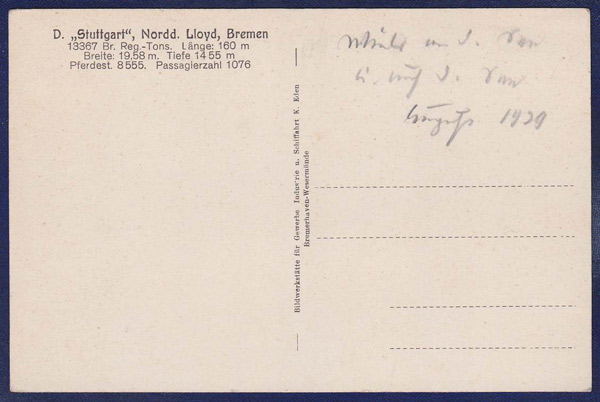 D. „Stuttgart“, Nordd. Lloyd, Bremen
13367 Br. Reg.-Tons. Länge: 160 m
Breite: 19,58 m. Tiefe 14 55 m
Pferdest. 8 555. Passagierzahl 1076
Bildwerkstätte für Gewerbe Industrie u. Schiffahrt K. Eden
Bremerhaven-Wesermünde
d.
u. auf d.
1929